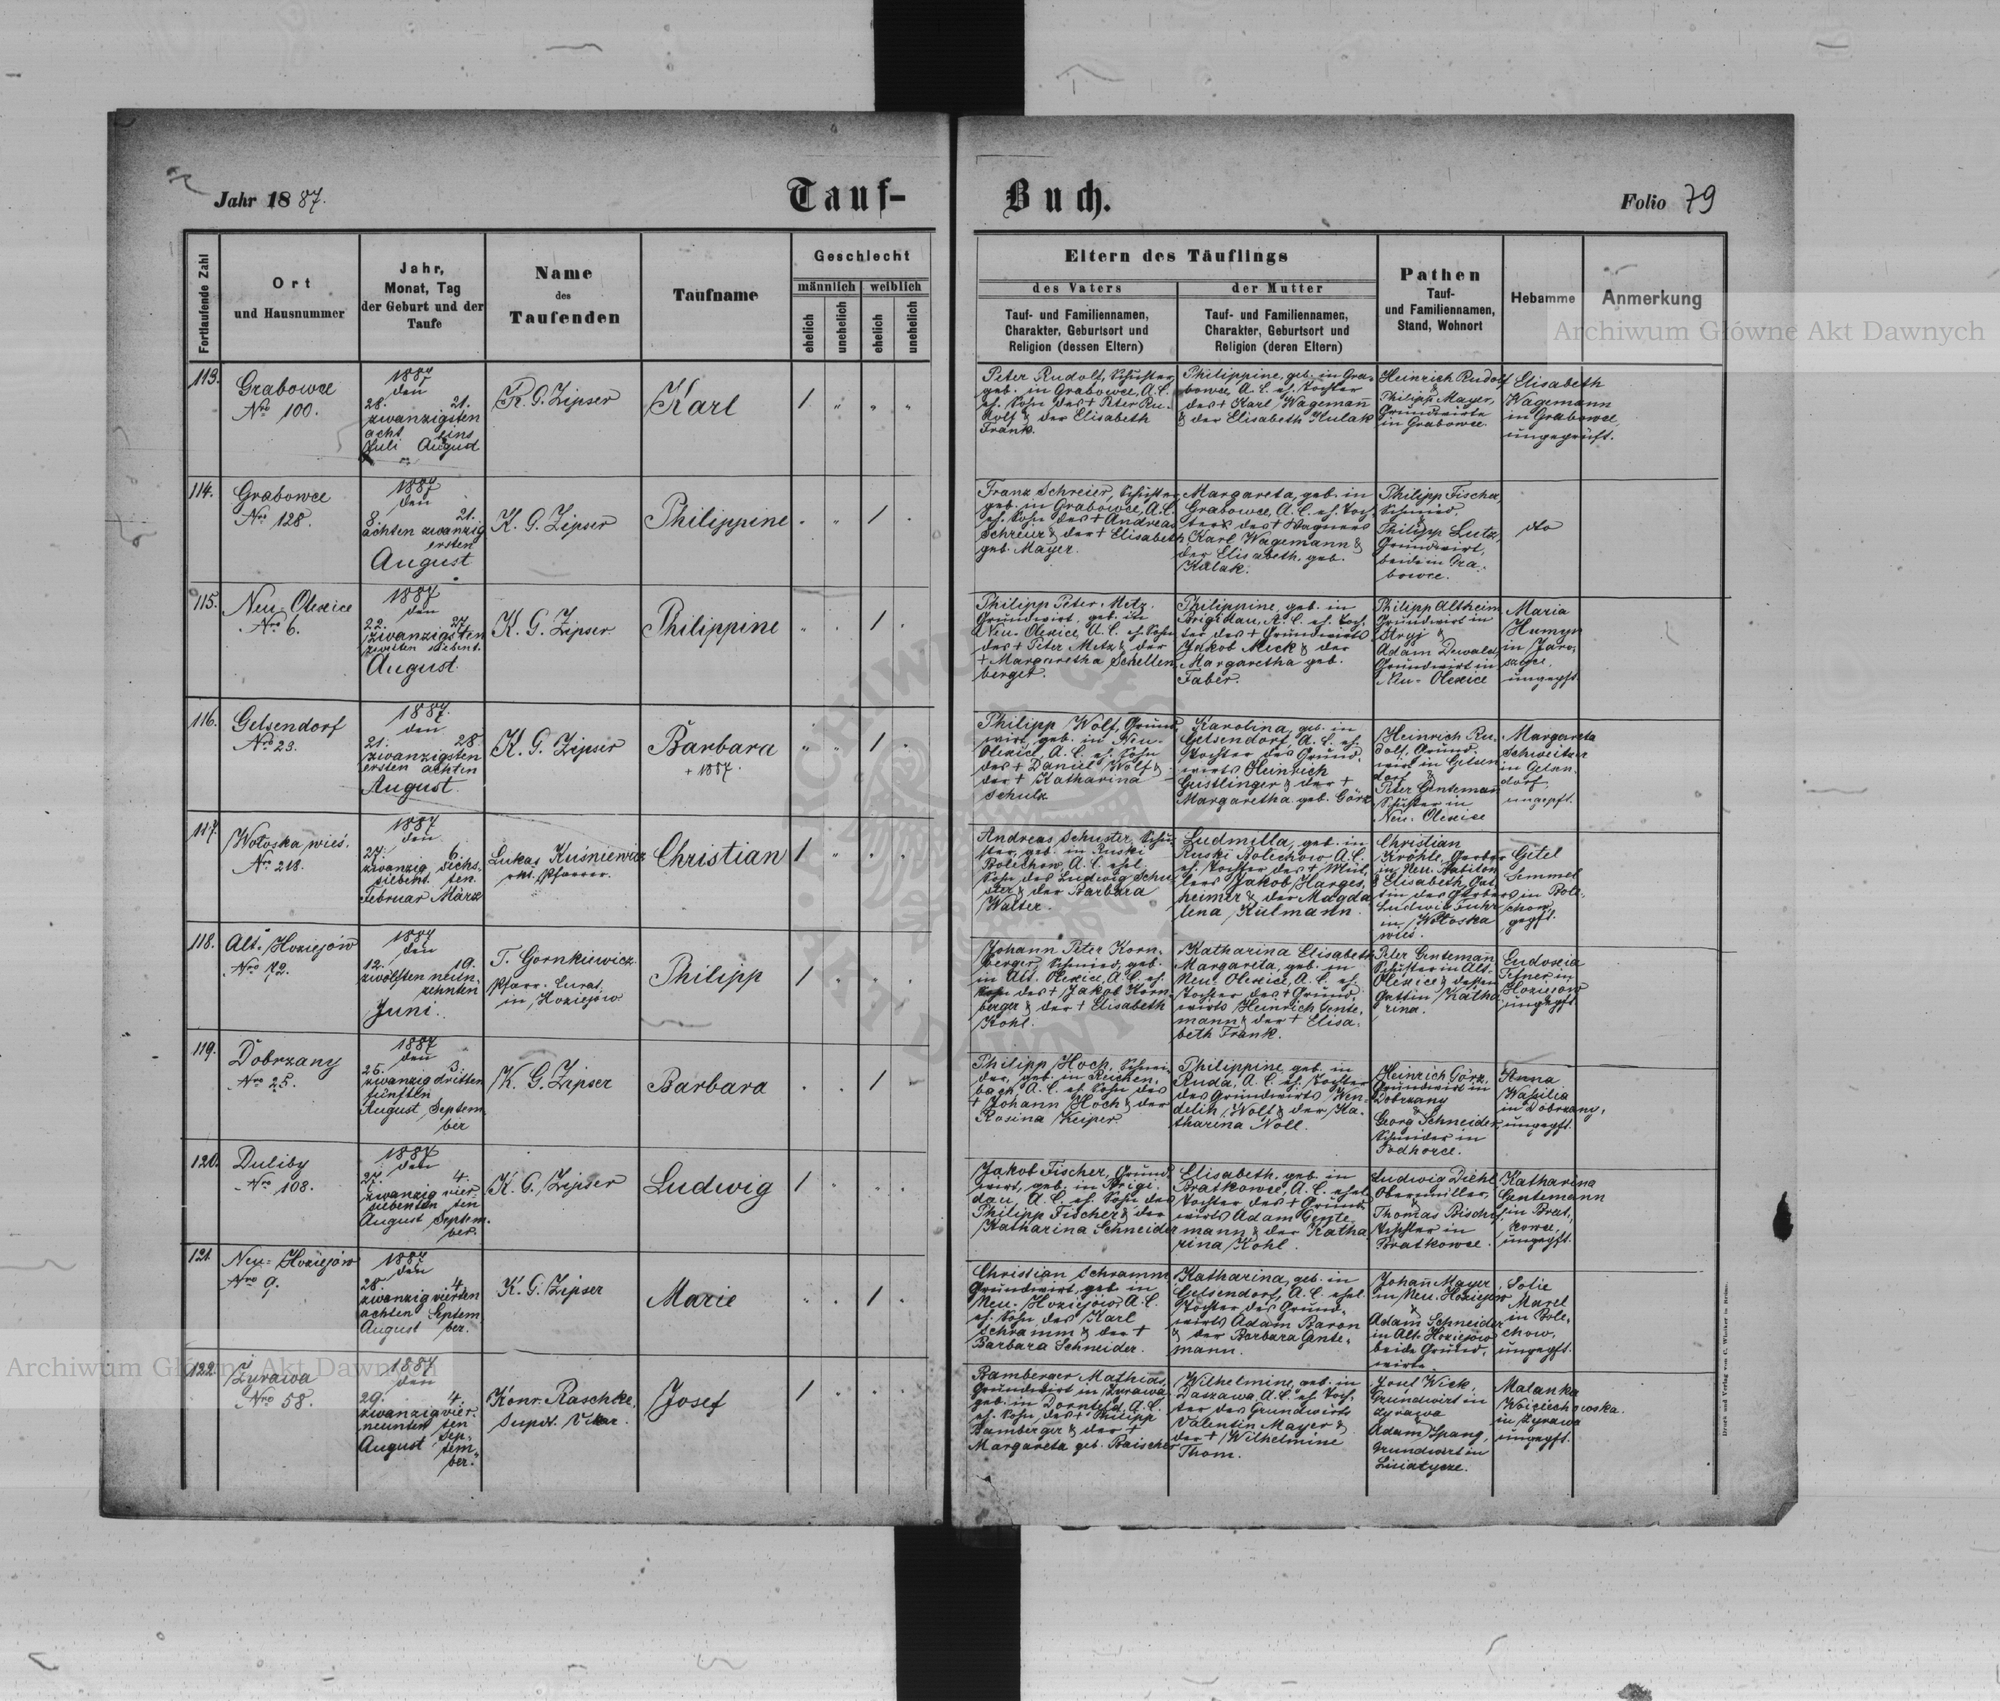 Jahr 1887.
Tauf-
Buch.
Folio 79
Fortlaufende Zahl
Ort
und Hausnummer
Jahr,
Monat, Tag
der Geburt und der
Taufe
Name
des
Taufenden
Taufname
Geschlecht
männlich
weiblich
ehelich
unehelich
ehelich
unehelich
Eltern des Täuflings
des Vaters
Tauf- und Familiennamen,
Charakter, Geburtsort und
Religion (dessen Eltern)
der Mutter
Tauf- und Familiennamen,
Charakter, Geburtsort und
Religion (deren Eltern)
Pathen
Tauf-
und Familiennamen,
Stand, Wohnort
Hebamme
Anmerkung
113.
Grabowce
Nro 100.
1887
den
28. 21.
zwanzigsten
acht eins
Juli August
K. G. Zipser
Karl
1
Peter Rudolf, Schuster,
geb. in Grabowce, A.C.
eh. Sohn des + Peter Ru-
dolf & der Elisabeth
Frank.
Philippine, geb. in Gra-
bowce, A. C. eh. Tochter
des + Karl Wagemann
& der Elisabeth Kulak
Heinrich Rudolf
&
Philipp Mayer,
Grundwirte
in Grabowce.
Elisabeth
Wagemann
in Grabowce,
ungeprüft.
114.
Grabowce
Nro 128.
1887
den
8. 21.
achten zwanzig
ersten
August
K. G. Zipser
Philippine
1
Franz Schreier, Schuster,
geb. in Grabowce, A.C.
eh. Sohn des + Andreas
Schreier & der + Elisabeth
geb. Mayer.
Margareta, geb. in
Grabowce, A. C. eh. Toch-
ter des + Wagners
Karl Wagemann &
der Elisabeth, geb.
Kulak.
Philipp Fischer,
Schmied,
&
Philipp Lutz,
Grundwirt,
beide in Gra-
bowce.
dto
115.
Neu-Olexice
Nro 6.
1887
den
22. 27.
zwanzigsten
zweiten siebent.
August
K. G. Zipser
Philippine
1
Philipp Peter Metz,
Grundwirt, geb. in
Neu-Olexice, A. C. eh. Sohn
des + Peter Metz & der
+ Margaretha Schellen-
berger.
Philippine, geb. in
Brigidau, A. C. eh. Toch-
ter des + Grundwirts
Jakob Meck & der
Margaretha geb.
Faber.
Philipp Altheim,
Grundwirt in
Stryj &
Adam Dewald,
Grundwirt in
Neu-Olexice
Maria
Humyn
in Jaro-
salce,
ungepft.
116.
Gelsendorf
Nro 23.
1887.
den
21. 28.
zwanzigsten
ersten achten
August.
K. G. Zipser
Barbara
+ 1887.
1
Philipp Wolf, Grund-
wirt, geb. in Neu-
Olexice, A. C. eh. Sohn
des + Daniel Wolf &
der + Katharina
Schulz
Karolina, geb. in
Gelsendorf, A. C. eh.
Tochter des Grund-
wirts Heinrich
Geistlinger & der +
Margaretha geb. Görz
Heinrich Ru-
dolf, Grund-
wirt in Gelsen-
dorf &
Peter Gentemann
Schuster in
Neu-Olexice
Margareta
Schweitzer
in Gelsen-
dorf,
ungepft.
117.
Wołoska wieś.
Nro 218.
1887
den
27. 6.
zwanzig sechs-
siebent. ten.
Februar März
Lukas Kuśniewicz
rkt. Pfarrer.
Christian
1
Andreas Schuster, Schu-
ster, geb. in Ruski
Bolechow, A. C. ehel.
Sohn des Ludwig Schu-
ster & der Barbara
Walter.
Ludmilla, geb. in
Ruski Bolechow A. C.
eh. Tochter des + Mül-
lers Jakob Harges-
heimer & der Magda-
lena Kulmann.
Christian
Kröhle, Gerber
in Neu-Babilon
& Elisabeth, Gat-
tin des Gerbers
Ludwig Fuhr
in Wołoska
wieś.
Gitel
Semmel
in Bole-
chow,
gepft.
118.
Alt-Hoziejów
Nro 72.
1887
den
12. 19.
zwölften neun-
zehnten
Juni.
T. Gornkiewicz
Pfarr. Curat,
in Hoziejów
Philipp
1
Johann Peter Korn-
berger, Schmied, geb.
in Alt-Olexice, A. C. eh.
Sohn des + Jakob Korn-
berger & der + Elisabeth
Kohl.
Katharina Elisabeth
Margareta, geb. in
Neu-Olexice, A. C. eh.
Tochter des + Grund-
wirts Heinrich Gente-
mann & der + Elisa-
beth Frank.
Peter Genteman
Schuster in Alt-
Olexice & dessen
Gattin Katha-
rina.
Eudoxia
in
Hoziejów
ungepft
119.
Dobrzany
Nro 25.
1887
den
25. 3.
zwanzig dritten
fünften
August Septem
ber
K. G. Zipser
Barbara
1
Philipp Hoch, Schnei-
der, geb. in Reichen-
bach, A. C. eh. Sohn des
+ Johann Hoch & der
Rosina Keiper
Philippine, geb. in
Ruda, A. C. eh. Tochter
des Grundwirts Wen-
delin Wolf & der Ka-
tharina Noll.
Heinrich Görz,
Grundwirt in
Dobrzany
&
Georg Schneider,
Schneider in
Podhorce.
Anna
Wasilia
in Dobrzany,
ungepft.
120.
Duliby
Nro 108.
1887
den
27. 4.
zwanzig vier-
siebenten ten
August Septem-
ber.
K. G. Zipser
Ludwig
1
Jakob Fischer, Grund-
wirt, geb. in Brigi-
dau, A. C. eh. Sohn des
Philipp Fischer & der
Katharina Schneider
Elisabeth, geb. in
Bratkowce, A. C. ehel.
Tochter des + Grund-
wirts Adam Gente-
mann & der Katha-
rina Kohl.
Ludwig Diehl
Obermüller,
&
Thomas Bischof,
Tischler in
Bratkowce.
Katharina
Gentemann
in Brat-
kowce,
ungepft.
121.
Neu-Hoziejów
Nro 9.
1887
den
28. 4.
zwanzig vierten
achten Septem
August ber.
K. G. Zipser
Marie
1
Christian Schramm
Grundwirt, geb. in
Neu-Hoziejów, A. C.
eh. Sohn des Karl
Schramm & der +
Barbara Schneider.
Katharina, geb. in
Gelsendorf, A. C. ehel.
Tochter des Grund-
wirts Adam Baron
& der Barbara Gente-
mann.
Johann Mayer
in Neu-Hoziejow
&
Adam Schneider
in Alt-Hoziejow
beide Grund-
wirte.
Sofie
Marel
in Bole-
chow,
ungepft.
122.
Żyrawa
Nro 58.
1887
den
29. 4.
zwanzig vier-
neunten ten
August Sep-
tem-
ber.
Konr. Raschke,
Supdt. Vikar.
Josef
1
Bamberger Mathias,
Grundwirt in Żyrawa
geb. in Dornfeld, A. C.
eh. Sohn des + Philipp
Bamberger & der +
Margareta geb. Baischer
Wilhelmine, geb. in
Daszawa, A. C. eh. Toch-
ter des Grundwirts
Valentin Mayer &
der + Wilhelmine
Thom.
Josef Wick,
Grundwirt in
Zyrawa
&
Adam Spang,
Grundwirt in
Lisiatycze.
Malanka
Woiciechowska
in Zyrawa
ungepft.
Archiwum Główne Akt Dawnych
Archiwum Główne Akt Dawnych